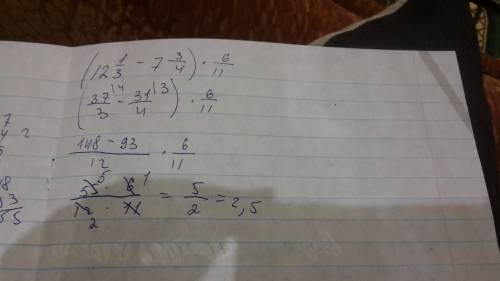 (12 1/3 - 7 3/4) · 6/11
(37/3 |4 - 31/4 |3) · 6/11
(148 - 93)/12 · 6/11
(55 5 · 6 1)/(12 2 · 11) = 5/2 = 2,5